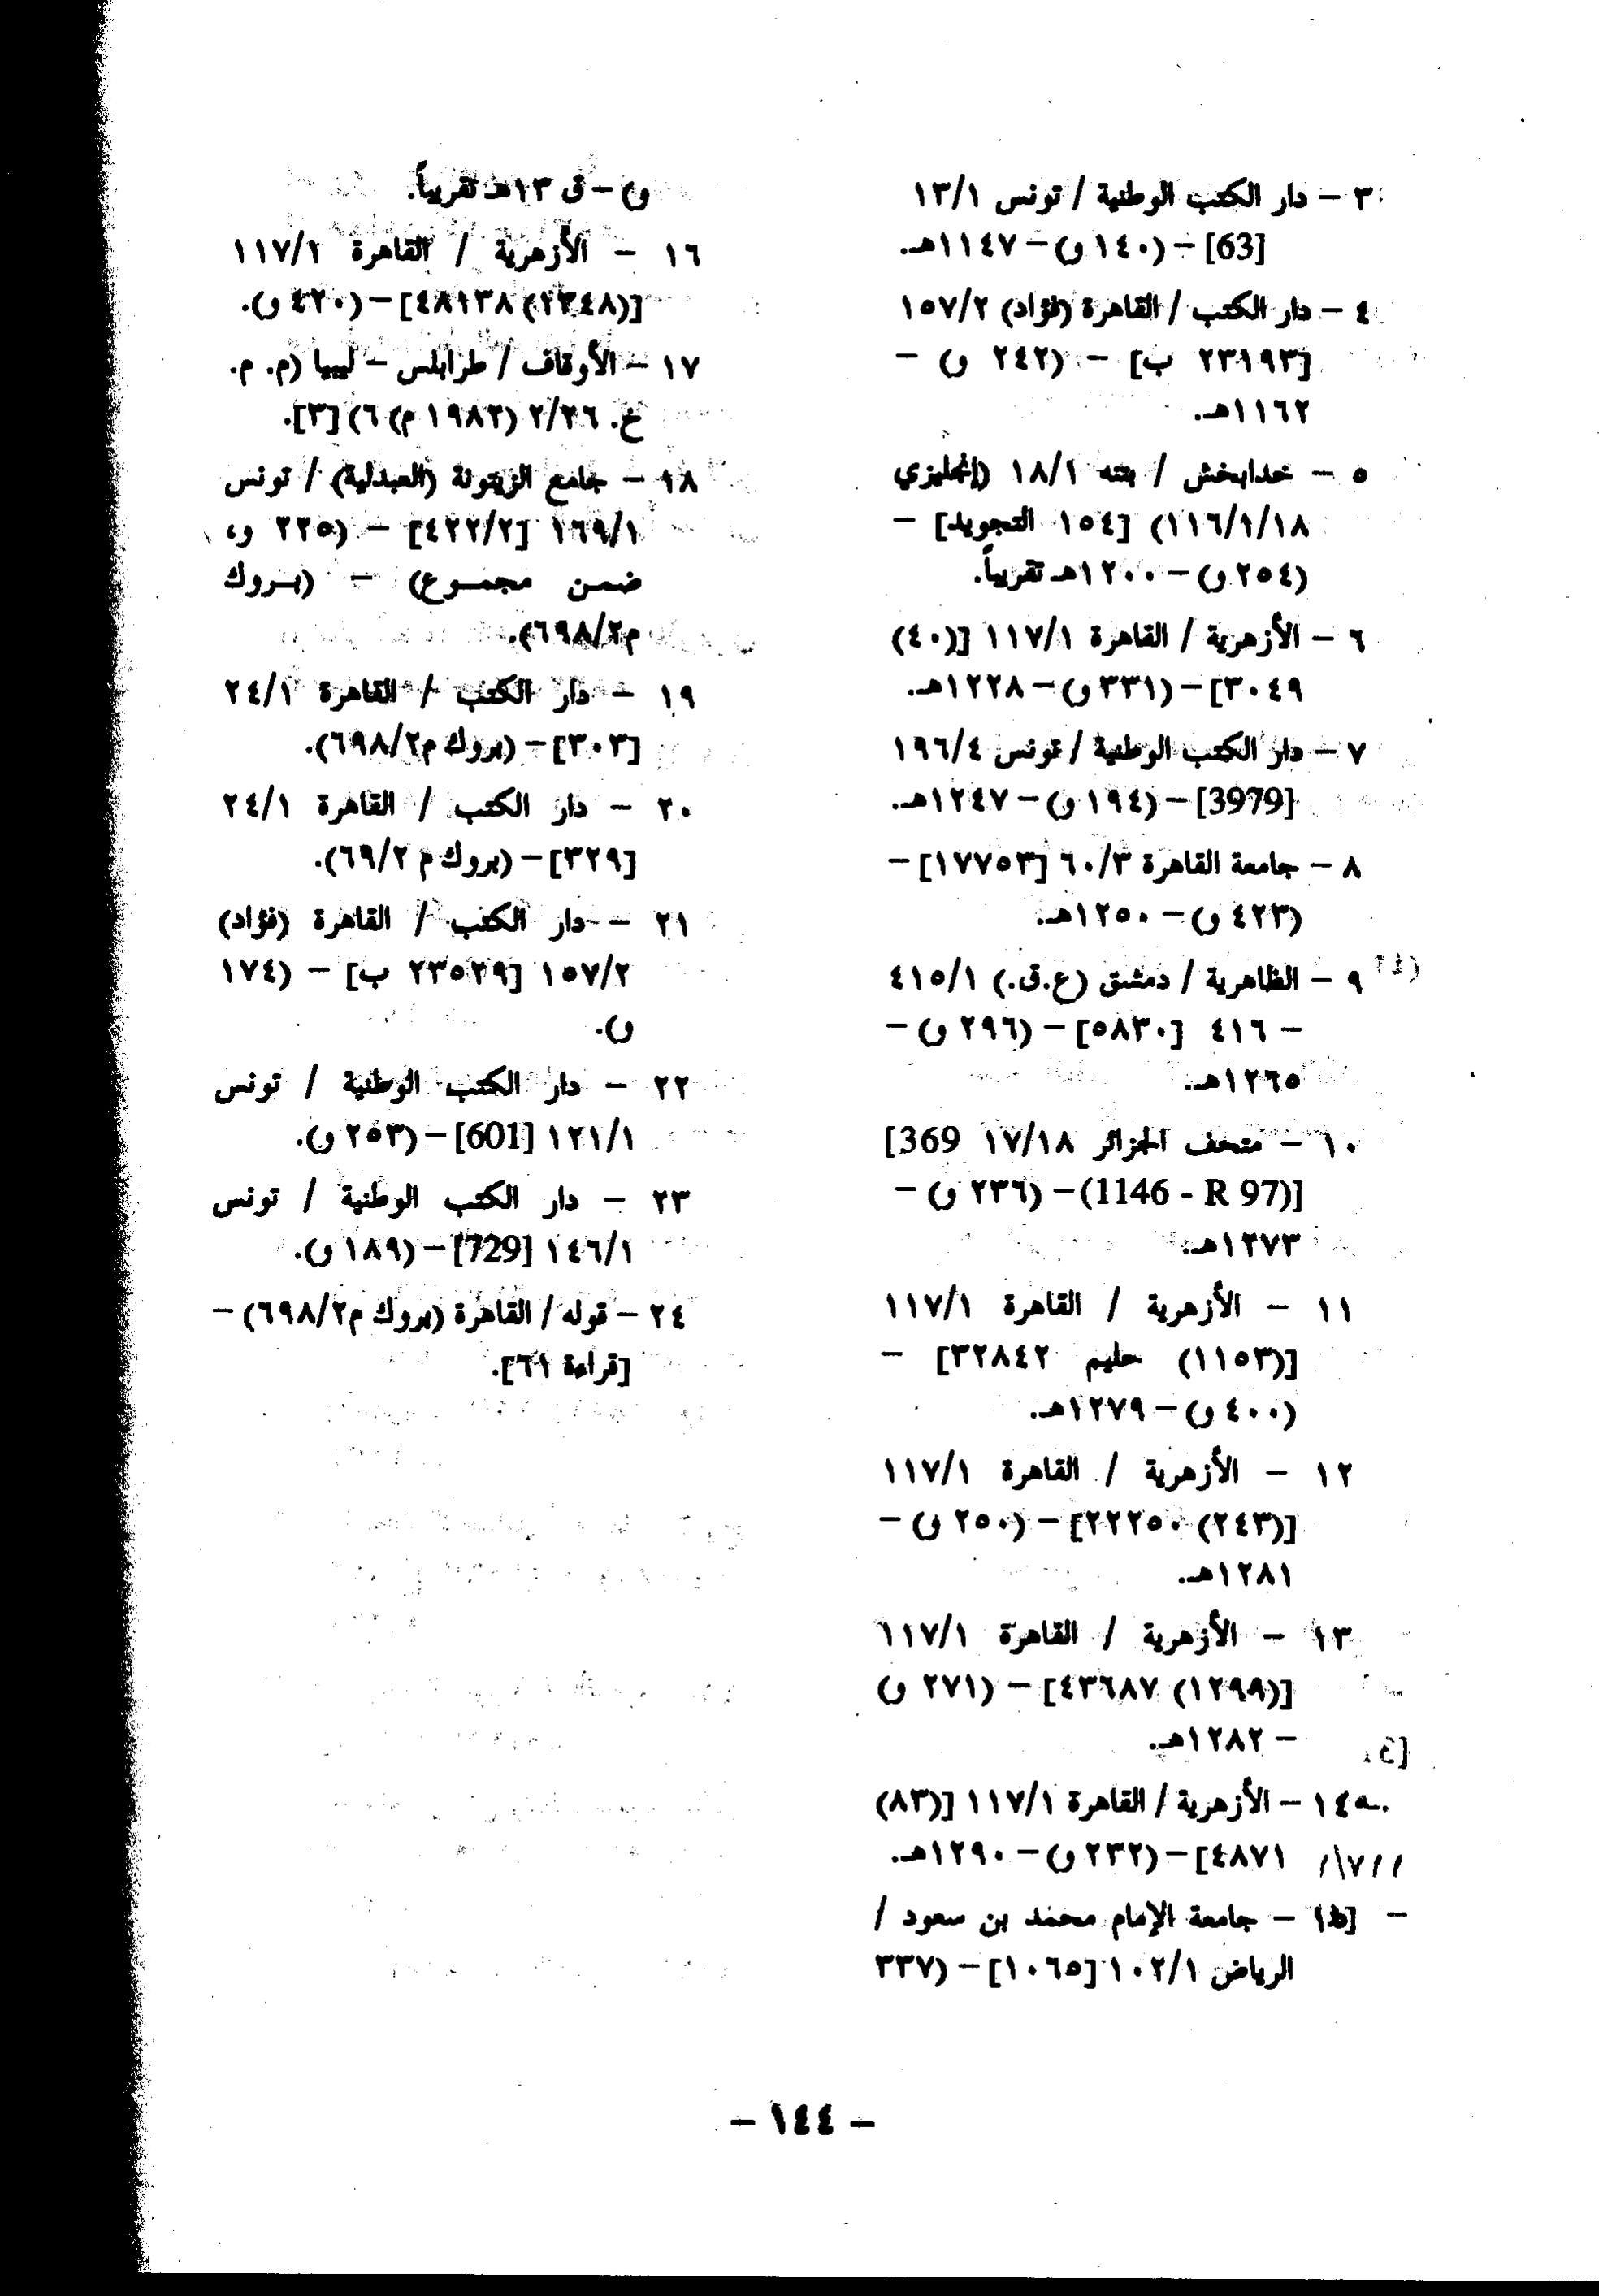 ٣ – دار الكتب الوطنية / تونس ١٣/١
[63] – (١٤٠ و) – ١١٤٧هـ.
٤ – دار الكتب / القاهرة (فؤاد) ١٥٧/٢
[٢٣١٩٣ ب] – (٢٤٢ و) –
١١٦٢هـ.
٥ – خدابخش / بتنه ١٨/١ (إنجليزي
١١٦/١/١٨) [١٥٤ التجويد] –
(٢٥٤ و) – ١٢٠٠هـ تقريباً.
٦ – الأزهرية / القاهرة ١١٧/١ [(٤٠)
٣٠٤٩] – (٣٣١ و) – ١٢٢٨هـ.
٧ – دار الكتب الوطنية / تونس ١٩٦/٤
[3979] – (١٩٤ و) – ١٢٤٧هـ.
٨ – جامعة القاهرة ٦٠/٣ [١٧٧٥٣] –
(٤٢٣ و) – ١٢٥٠هـ.
٩ – الظاهرية / دمشق (ع.ق.) ٤١٥/١
– ٤١٦ [٥٨٣٠] – (٢٩٦ و) –
١٢٦٥هـ.
١٠ – متحف الجزائر ١٧/١٨ [369
(1146 - R 97)] – (٢٣٦ و) –
١٢٧٣هـ.
١١ – الأزهرية / القاهرة ١١٧/١
[(١١٥٣) حليم ٣٢٨٤٢] –
(٤٠٠ و) – ١٢٧٩هـ.
١٢ – الأزهرية / القاهرة ١١٧/١
[(٢٤٣) ٢٢٢٥٠] – (٢٥٠ و) –
١٢٨١هـ.
١٣ – الأزهرية / القاهرة ١١٧/١
[(١٢٩٩) ٤٣٦٨٧] – (٢٧١ و)
– ١٢٨٢هـ.
١٤ – الأزهرية / القاهرة ١١٧/١ [(٨٣)
٤٨٧١] – (٢٣٢ و) – ١٢٩٠هـ.
– جامعة الإمام محمد بن سعود /
الرياض ١٠٢/١ [١٠٦٥] – (٣٣٧
و) – ق ١٣هـ تقريباً.
١٦ – الأزهرية / القاهرة ١١٧/٢
[(١٣٤٨) ٤٨١٣٨] – (٤٢٠ و).
١٧ – الأوقاف / طرابلس – ليبيا (م. م.
خ. ٢/٢٦ (١٩٨٢ م) ٦) [٣].
١٨ – جامع الزيتونة (العبدلية) / تونس
١٦٩/١ [٤٢٢/٢] – (٢٢٥ و،
ضمن مجموع) – (بروك
م٦٩٨/٢).
١٩ – دار الكتب / القاهرة ٢٤/١
[٣٠٣] – (بروك م٦٩٨/٢).
٢٠ – دار الكتب / القاهرة ٢٤/١
[٣٢٩] – (بروك م ٦٩/٢).
٢١ – دار الكتب / القاهرة (فؤاد)
١٥٧/٢ [٢٣٥٢٩ ب] – (١٧٤
و).
٢٢ – دار الكتب الوطنية / تونس
١٢١/١ [601] – (٢٥٣ و).
٢٣ – دار الكتب الوطنية / تونس
١٤٦/١ [729] – (١٨٩ و).
٢٤ – قوله / القاهرة (بروك م٦٩٨/٢) –
[قراءة ٦١].
– ١٤٤ –